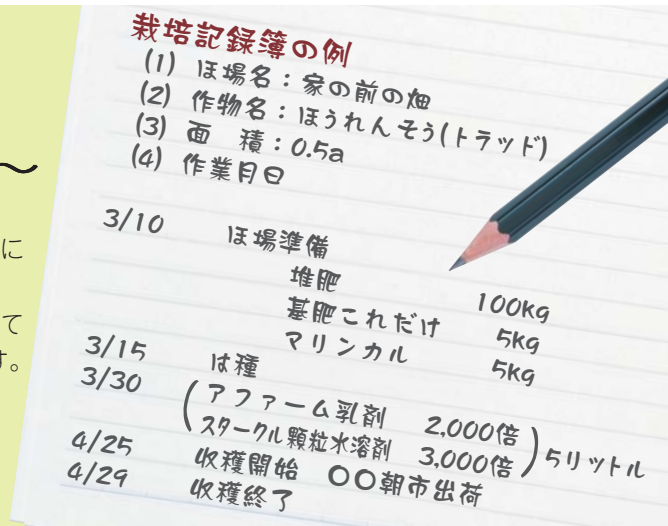 栽培記録簿の例
(1) ほ場名：家の前の畑
(2) 作物名：ほうれんそう(トラッド)
(3) 面　積：0.5a
(4) 作業月日
〜
3/10　ほ場準備
に
堆肥　100kg
基肥これだけ　5kg
て
マリンカル　5kg
す。
3/15　は種
3/30　(アファーム乳剤　2,000倍
スタークル顆粒水溶剤　3,000倍)5リットル
4/25　収穫開始　〇〇朝市出荷
4/29　収穫終了